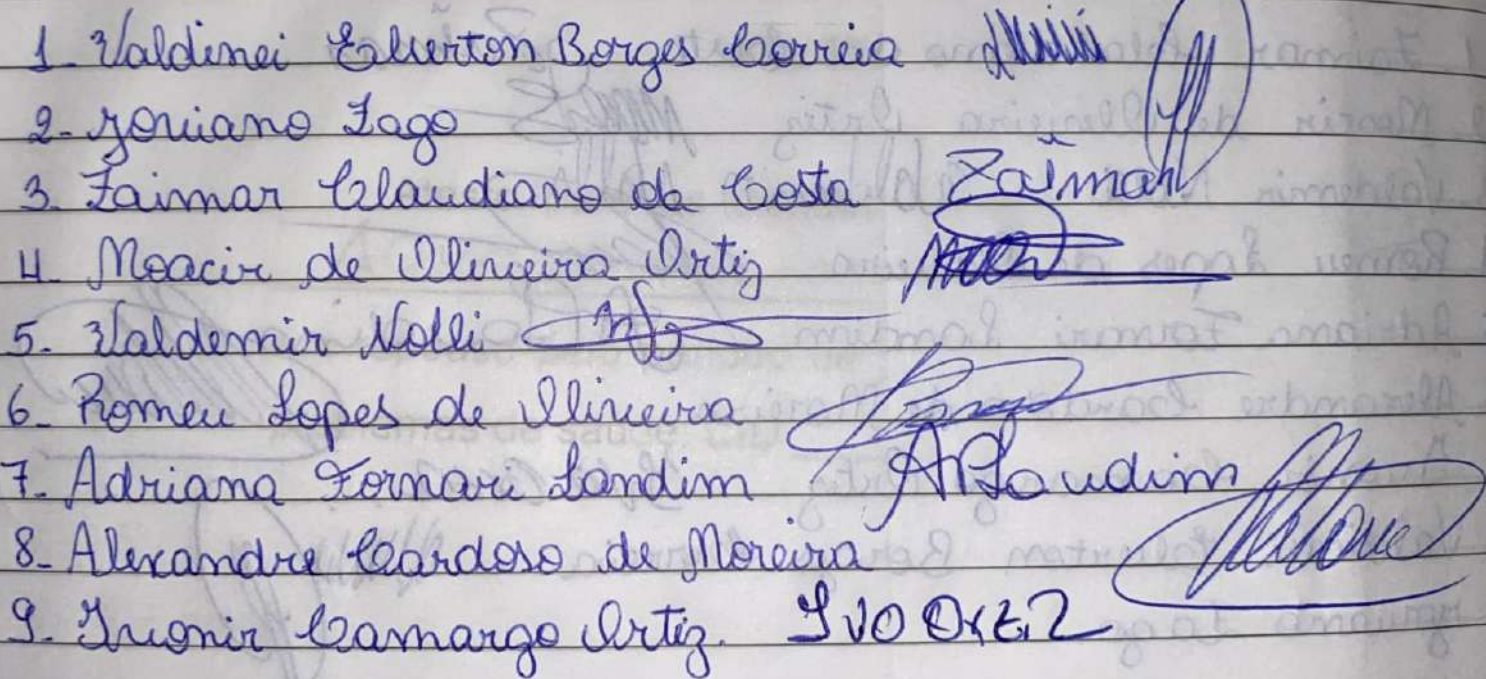 1. Valdinei Elverton Borges Correia
2- Joviano Lago
3. Zaimar Claudiano da Costa Zaimar
4- Moacir de Oliveira Ortiz
5- Valdemir Nolli
6- Romeu Lopes de Oliveira
7- Adriana Fornari Landim AFLandim
8- Alexandre Cardoso de Moreira
9- Ivonir Camargo Ortiz. IVO Ortiz